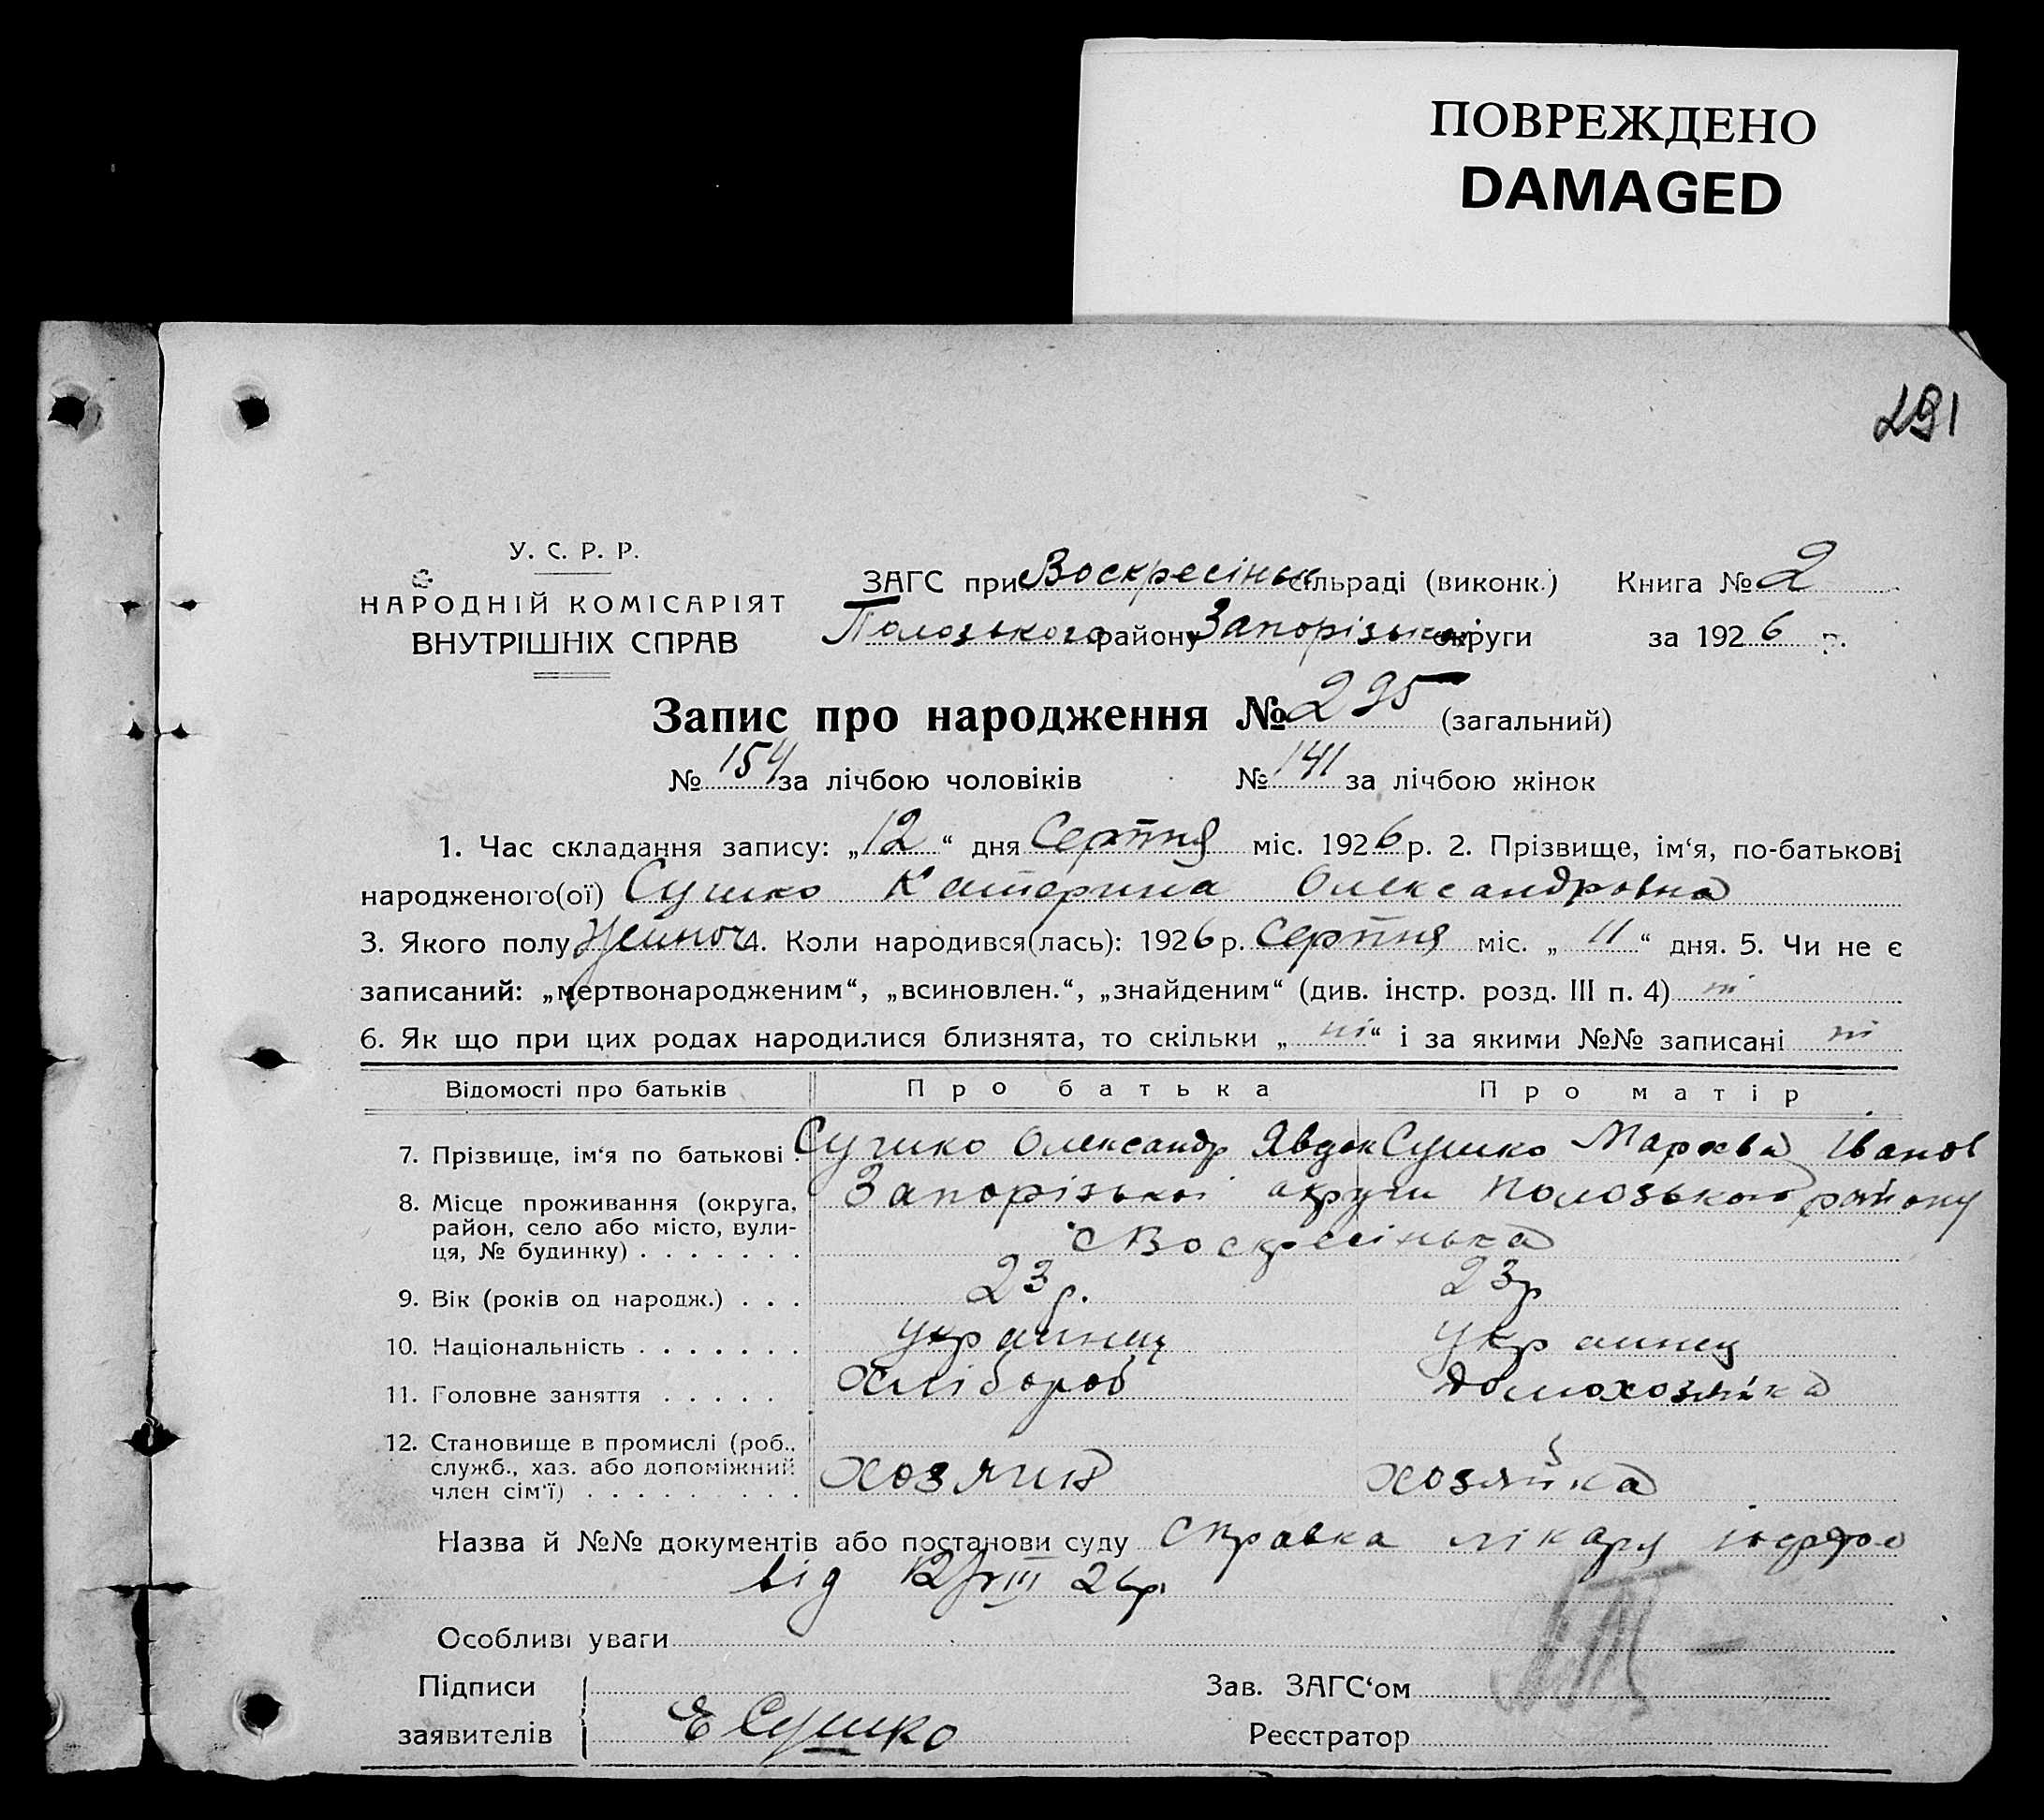 ПОВРЕЖДЕНО
DAMAGED
291
У. С. Р. Р.
НАРОДНІЙ КОМІСАРІЯТ
ВНУТРІШНІХ СПРАВ
ЗАГС при Воскресінськ сільраді (виконк.) Книга № 2
Пологського району Запорізької округи за 1926 р.
Запис про народження № 295 (загальний)
№ 154 за лічбою чоловіків № 141 за лічбою жінок
1. Час складання запису: „12“ дня Серпня міс. 1926 р. 2. Прізвище, ім‘я, по-батькові
народженого(ої) Сушко Катерина Олександровна
3. Якого полу жіноч 4. Коли народився(лась): 1926 р. Серпня міс. „11“ дня. 5. Чи не є
записаний: „мертвонародженим“, „всиновлен.“, „знайденим“ (див. інстр. розд. III п. 4) ні
6. Як що при цих родах народилися близнята, то скільки „ні“ і за якими №№ записані ні
Відомості про батьків Про батька Про матір
7. Прізвище, ім‘я по батькові . Сушко Олександр Явдок Сушко Мархва Іванов
8. Місце проживання (округа, Запорізької округи Полозького району
район, село або місто, вули-
ця, № будинку) . . . . . . . с Воскресінька
9. Вік (років од народж.) . . . 23 р. 23 р
10. Національність . . . . . . . украинец украинец
11. Головне заняття . . . . . Хлібороб домохозяйка
12. Становище в промислі (роб.,
служб., хаз. або допоміжний хозяин хозяйка
член сім‘ї) . . . . . . . . .
Назва й №№ документів або постанови суду Справка лікаря
від 12/VIII 26р.
Особливі уваги
Підписи Зав. ЗАГС‘ом
заявителів Е Сушко Реєстратор